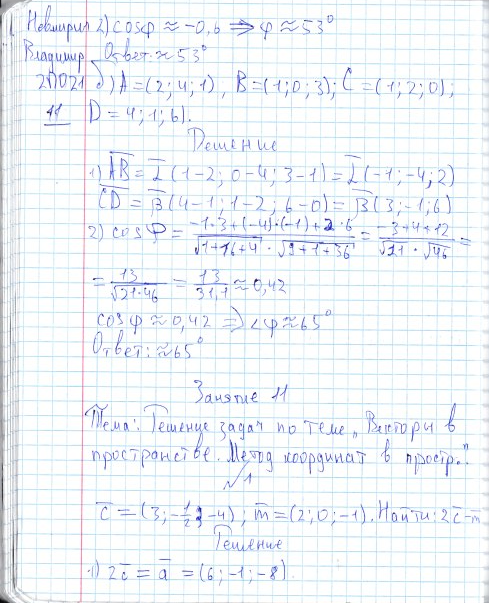 2) cosφ ≈ -0,6 ⇒ φ ≈ 53°
Владимир Ответ: ≈ 53°
б) A = (2; 4; 1), B = (1; 0; 3); C = (1; 2; 0);
11 D = 4; 1; 6).
Решение
1) AB = α (1-2; 0-4; 3-1) = α (-1; -4; 2)
CD = β (4-1; 1-2; 6-0) = β (3; -1; 6)
2) cos φ = (-1·3+(-4)·(-1)+2·6)/(√1+16+4 · √9+1+36) = (-3+4+12)/(√21 · √46) =
= 13/√21·46 = 13/31,1 ≈ 0,42
cosφ ≈ 0,42 ⇒ <φ ≈ 65°
Ответ: ≈ 65°
Занятие 11
Тема: Решение задач по теме „Векторы в
пространстве. Метод координат в простр."
№1
c = (3; -1/2; -4); m = (2; 0; -1). Найти: 2c - m
Решение
1) 2c = a = (6; -1; -8).